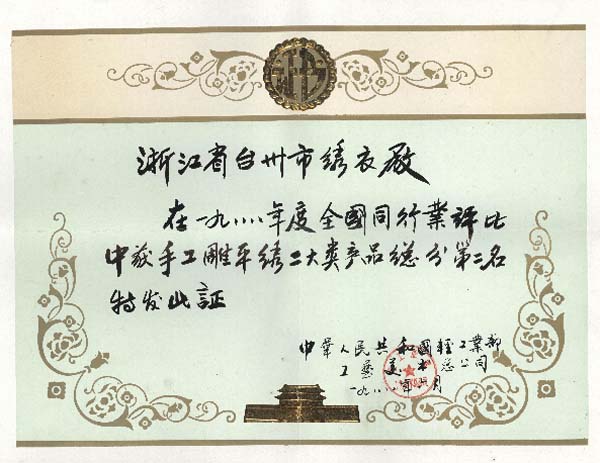 浙江省台州市绣衣厰
在一九八八年度全國同行業評比
中获手工雕平绣二大类产品總分第二名
特发此証
中華人民共和國輕工業部
工藝美术总公司
一九八八年 月